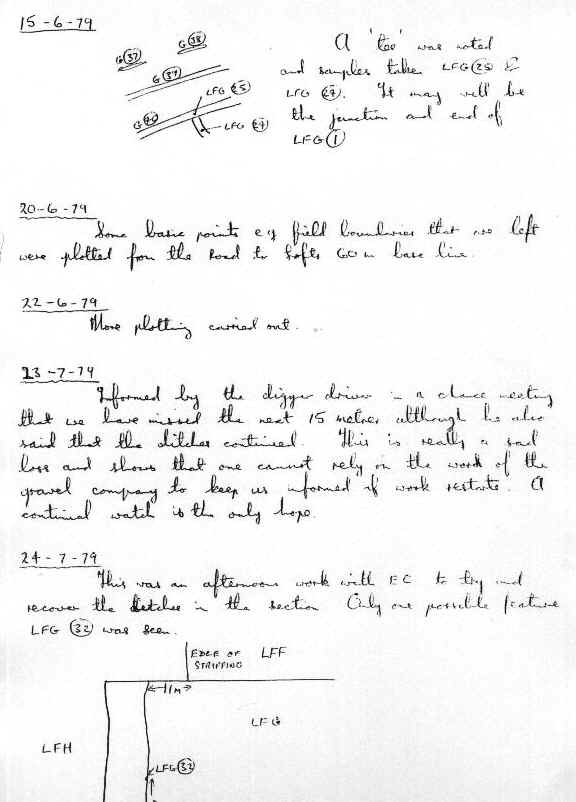 15-6-79
G 38
G 37
G 39
LFG 25
G 40
LFG 27
A 'tee' was noted
and samples taken LFG 25 &
LFG 27. It may well be
the junction and end of
LFG 1
20-6-79
Some basic points eg field boundaries that are left
were plotted from the Road to Lofts 60m base line.
22-6-79
More plotting carried out.
23-7-79
Informed by the digger driver in a chance meeting
that we have missed the next 15 metres although he also
said that the ditches continued. This is really a sad
loss and shows that one cannot rely on the word of the
gravel company to keep us informed if work restarts. A
continual watch is the only hope.
24-7-79
This was an afternoons work with EC to try and
recover the ditches in the section Only one possible feature
LFG 32 was seen.
EDGE OF
STRIPPING
LFF
1M
LFG
LFH
LFG 32